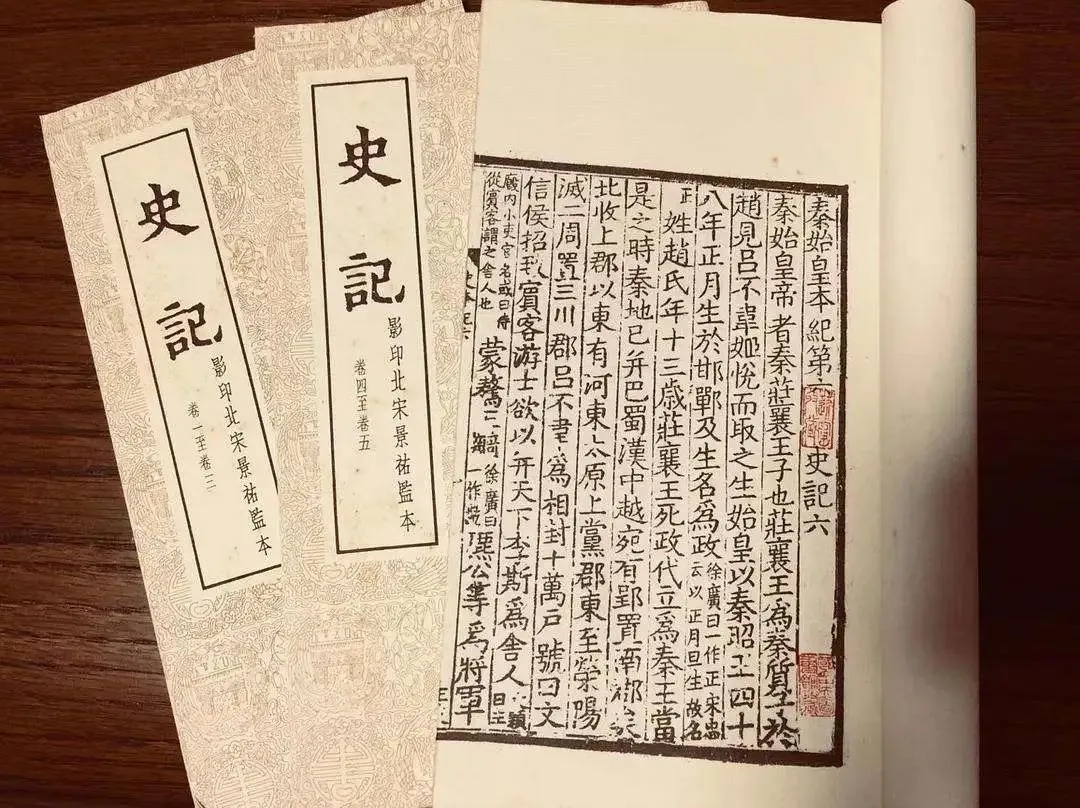 史記
影印北宋景祐監本
卷一至卷三
史記
影印北宋景祐監本
卷四至卷五
秦始皇本紀第六 史記六
秦始皇帝者秦莊襄王子也莊襄王爲秦質子於
趙見呂不韋姬悅而取之生始皇以秦昭王四十
八年正月生於邯鄲及生名爲政徐廣曰一作正宋忠云以正月旦生故名
正姓趙氏年十三歲莊襄王死政代立爲秦王當
是之時秦地已并巴蜀漢中越宛有郢置南郡矣
北收上郡以東有河東太原上黨郡東至滎陽
滅二周置三川郡呂不韋爲相封十萬戶號曰文
信侯招致賓客游士欲以并天下李斯爲舍人
廄內小吏官名或曰侍從賓客謂之舍人也蒙驁王齮徐廣曰一作麃公等爲將軍